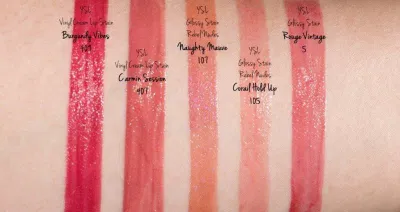 YSL
Vinyl Cream Lip Stain
Burgundy Vibes
409
YSL
Vinyl Cream Lip Stain
Carmin Session
407
YSL
Glossy Stain
Rebel Nudes
Naughty Mauve
107
YSL
Glossy Stain
Rebel Nudes
Corail Hold Up
105
YSL
Glossy Stain
Rouge Vintage
5